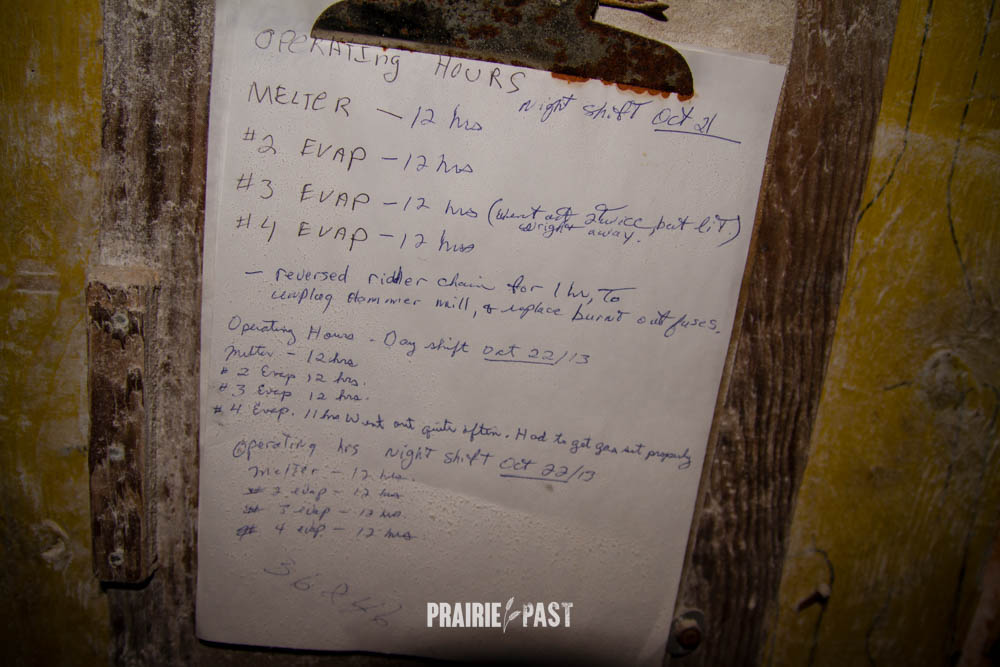 OPERATING HOURS
Night shift Oct 21
MELTER - 12 hrs
#2 EVAP - 12 hrs
#3 EVAP - 12 hrs (went out twice, but lit)
right away.
#4 EVAP - 12 hrs
- reversed ridler chain for 1 hr, To
unplug Hammer mill, & replace burnt out fuses.
Operating Hours - Day shift Oct 22/13
Melter - 12 hrs
# 2 Evap 12 hrs.
# 3 Evap 12 hrs.
# 4 Evap. 11 hrs Went out quite often. Had to get gas set properly
Operating hrs Night shift Oct 22/13
Melter - 12 hrs.
# 2 evap - 12 hrs
# 3 evap - 12 hrs.
# 4 evap - 12 hrs
PRAIRIE PAST